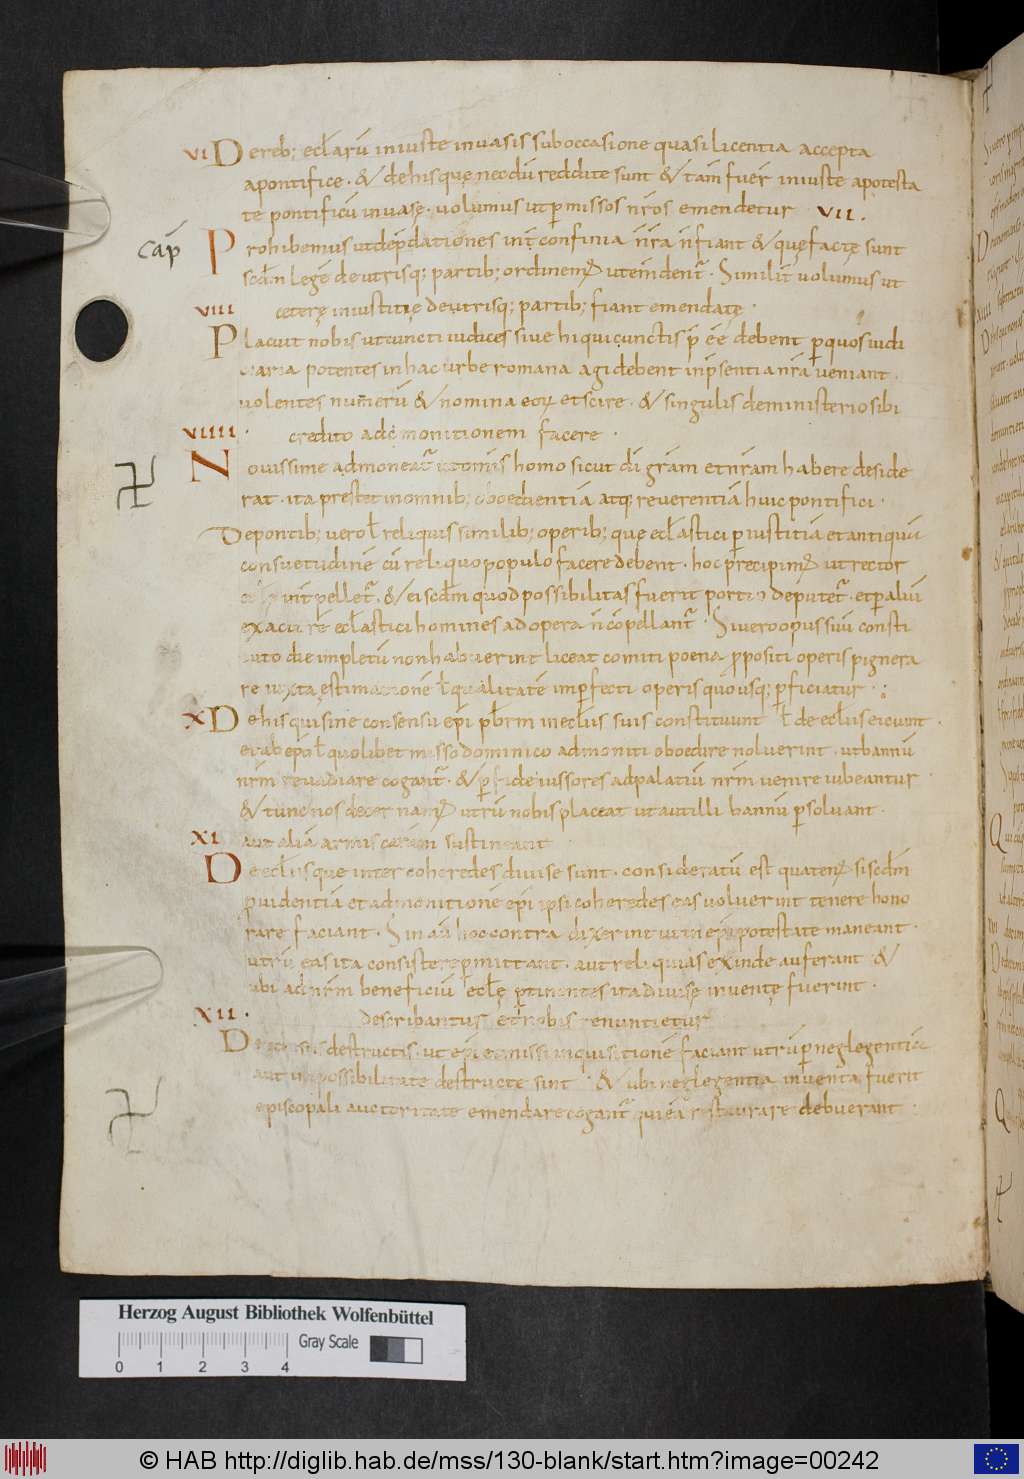 VI De reb; eclarū iniuste inuasis sub occasione quasi licentia accepta
a pontifice · & de hisque necdū reddite sunt & tam fuer̄ iniuste a potesta
te pontificū inuasę · uolumus ut p̄ missos nr̄os emendetur VII.
Cap̄ Prohibemus ut dep̄dationes int̄ confinia nr̄a n̄ fiant & quę factę sunt
scd̄m legē de utrisq; partib; ordinem; ut eḿdent̄ · Similit̄ uolumus ut
VIII ceterę iniustitię de utrisq; partib; fiant emendatę ·
Placuit nobis ut cuncti iudices siue hi qui cunctis p̄ēē debent p̄ quos iudi
ciaria potentes in hac urbe romana agi debent in p̄sentia nr̄a ueniant ·
uolentes numerū & nomina eorꝝ et scire · & singulis de ministerio sibi
VIIII · credito admonitionem facere ·
Nouissime admoneat̄ ut omnis homo sicut di gr̄am et nr̄am habere deside
rat · ita prestet in omnib; oboedientiā atq; reuerentiā huic pontifici ·
De pontib; uero ł reliquis similib; operib; que ecl̄astici p̄ iustitiā et antiquā
consuetudinē cū reliquo populo facere debent · hoc p̄recipim; ut rector
int̄pellet̄ · & ei scd̄m quod possibilitas fuerit portio deputet̄ · et p̄ aliū
exactorē ecl̄astici homines ad opera n̄ cōpellant̄ · Si uero opus suū consti
tuto die impletū non habuerint liceat comiti poena p̄positi operis pignera
re iuxta ęstimationē ł qualitatē imp̄fecti operis quousq; p̄ficiatur · ;
X De his qui sine consensu ep̄i pb̄rm in ecl̄iis suis constituunt ł de ecl̄iis eiciunt ·
et ab ep̄o ł quolibet misso dominico admoniti oboedire noluerint · ut bannū
nr̄m reuadiare cogant̄ · & p̄ fideiussores ad palatiū nr̄m uenire iubeantur
& tunc nos decernam; utrū nobis placeat ut aut illi bannū p̄soluant ·
XI aut aliā armiscaram sustineant
De ecl̄iis que inter coheredes diuise sunt · consideratū est quaten; si scd̄m
p̄uidentiā et admonitionē ep̄i ipsi coheredes eas uoluerint tenere hono
rare faciant · Sin aū hoc contra dixerint ut in ep̄i potestate maneant ·
utrū eas ita consistere p̄mittant · aut reliquias exinde auferant &
ubi ad nr̄m beneficiū ecl̄ę p̄tinentes ita diuise inuentę fuerint ·
XII · describantur et nobis renuntietur
De ecl̄iis destructis · ut ep̄i et missi inquisitionē faciant utrū p̄ neglegentia
aut impossibilitate destructę sint · & ubi neglegentia inuenta fuerit
episcopali auctoritate emendare cogant̄ qui eā restaurare debuerant ·
Herzog August Bibliothek Wolfenbüttel
Gray Scale
0 1 2 3 4
© HAB http://diglib.hab.de/mss/130-blank/start.htm?image=00242